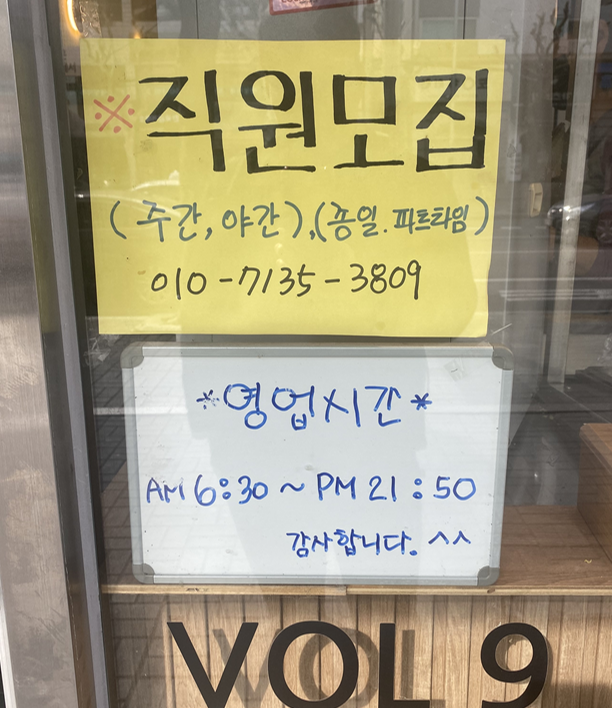 ※직원모집
(주간,야간),(종일.파트타임)
010-7135-3809
*영업시간*
AM 6:30 ~ PM 21:50
감사합니다. ^^
VOL 9